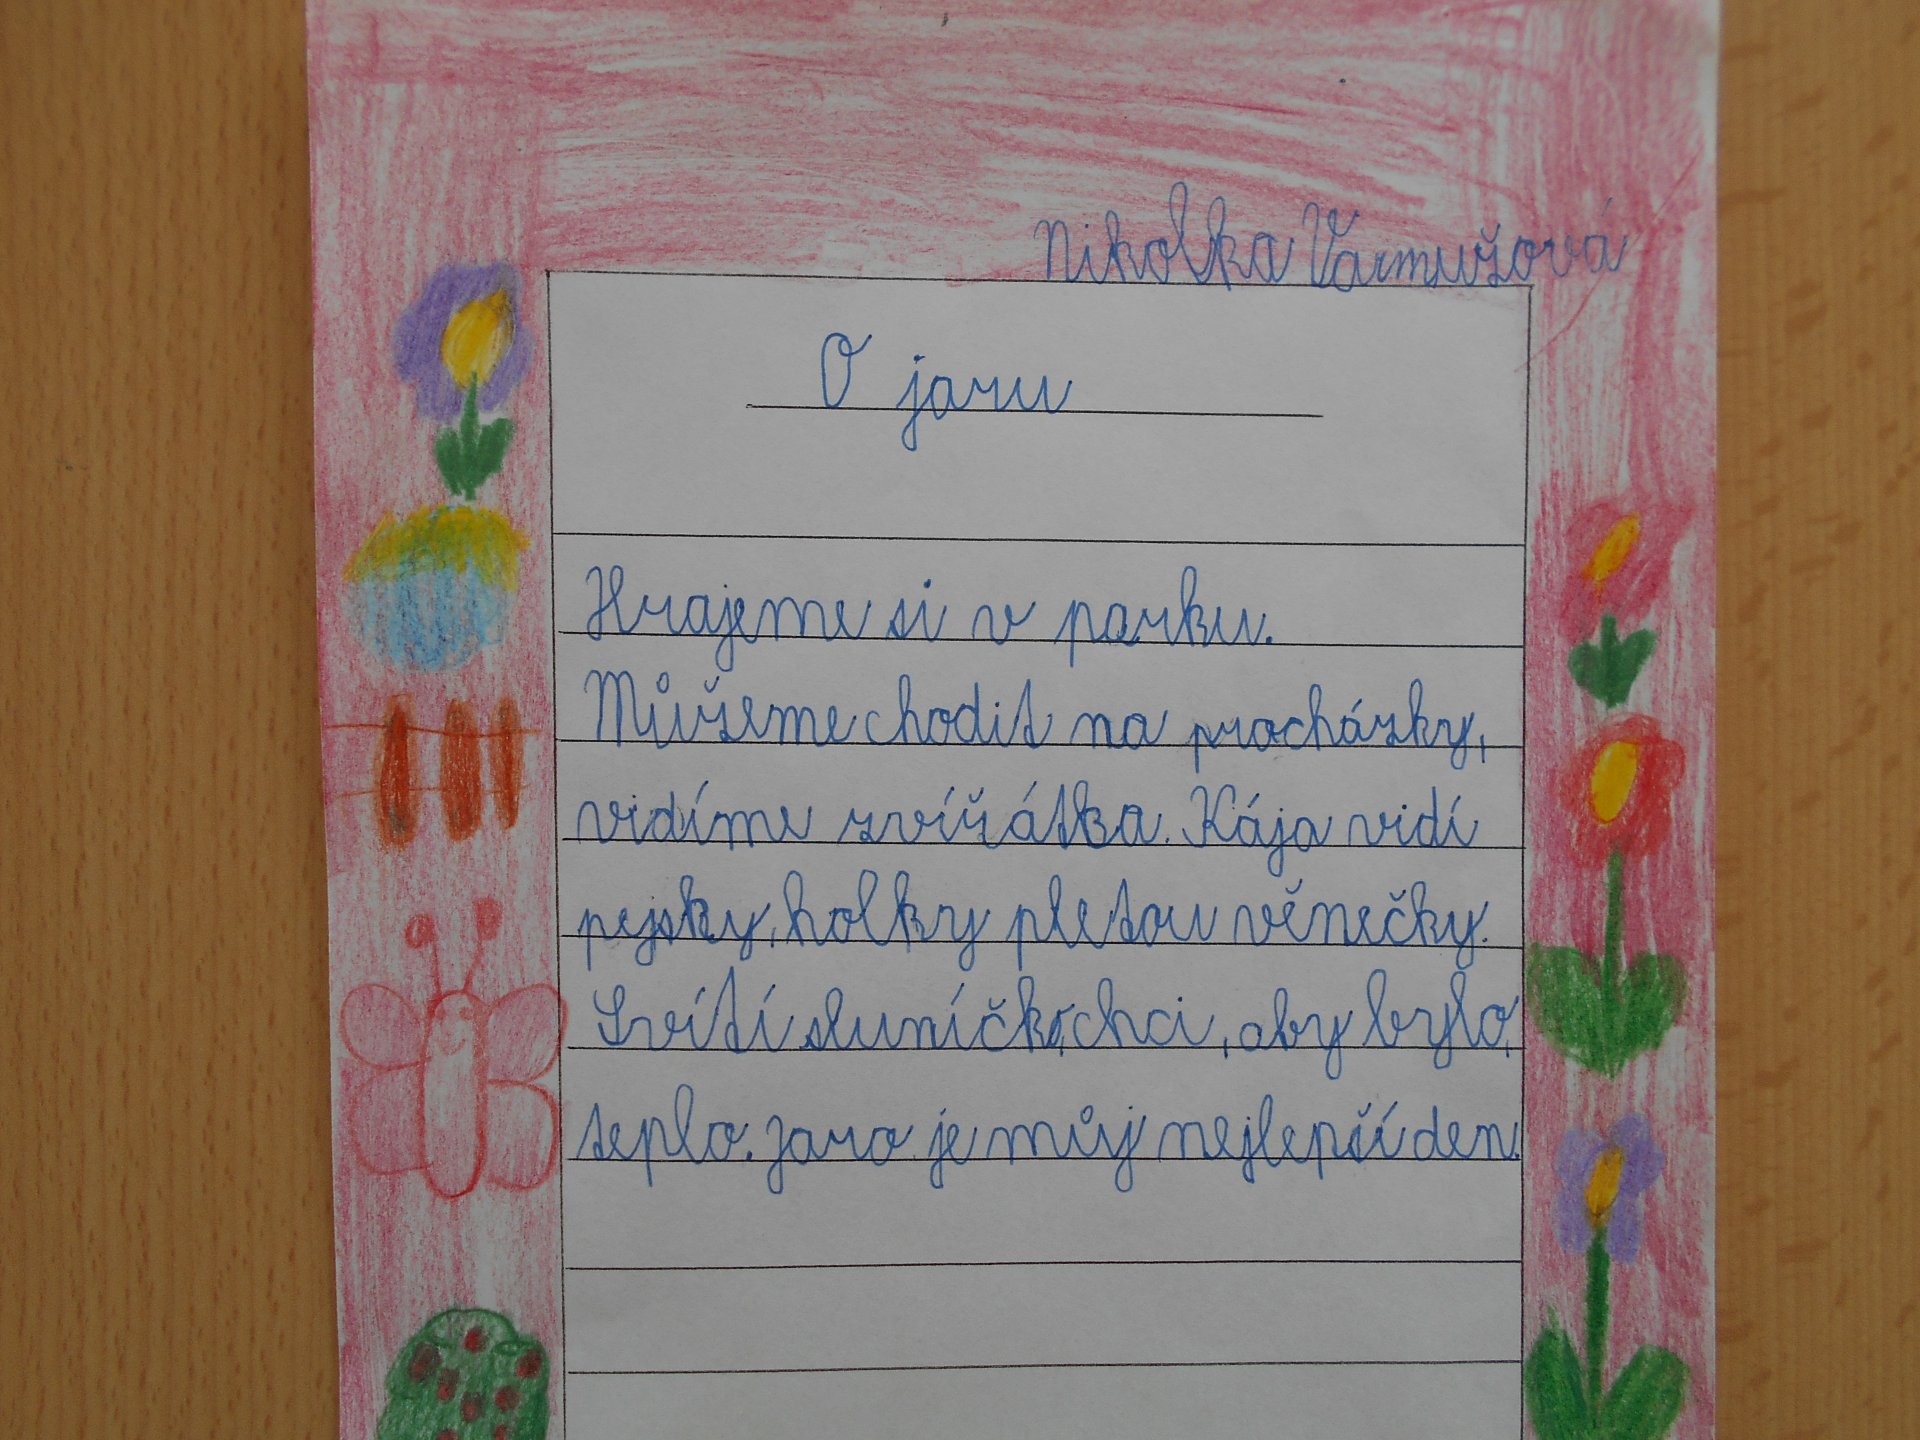 Nikolka Varmužová
O jaru
Hrajeme si v parku.
Můžeme chodit na procházky,
vidíme zvířátka. Kája vidí
pejsky, holky pletou věnečky.
Svítí sluníčko, chci, aby bylo,
teplo. Jaro je můj nejlepší den.